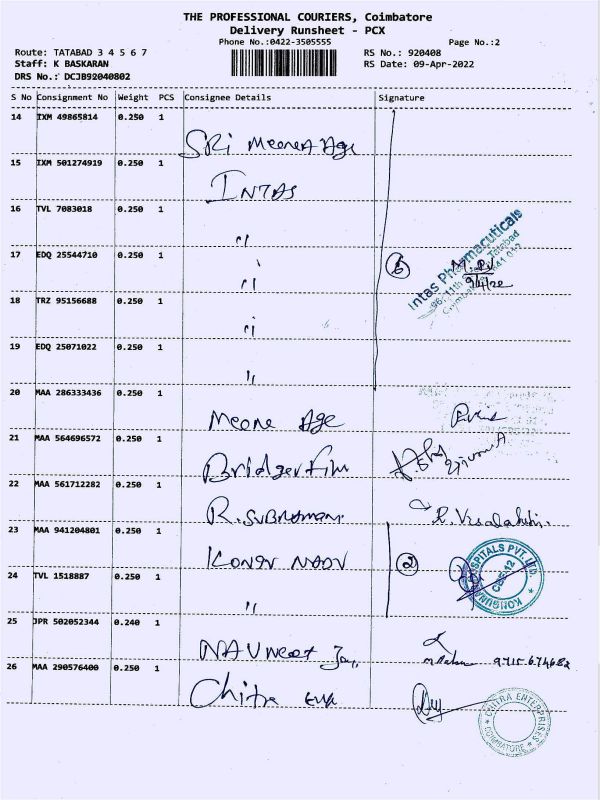 THE PROFESSIONAL COURIERS, Coimbatore
Delivery Runsheet - PCX
Phone No.:0422-3505555
Page No.:2
Route: TATABAD 3 4 5 6 7
RS No.: 920408
Staff: K BASKARAN
RS Date: 09-Apr-2022
DRS No.: DCJB92040802
S No Consignment No Weight PCS Consignee Details Signature
14 IXM 49865814 0.250 1
SRi Meena Age
15 IXM 501274919 0.250 1
INTAS
16 TVL 7083018 0.250 1
"
17 EDQ 25544710 0.250 1
"
6
Intas Pharmaceuticals
Tatabad
9/4/22
18 TRZ 95156688 0.250 1
"
19 EDQ 25071022 0.250 1
"
20 MAA 286333436 0.250 1
Meena Age
21 MAA 564696572 0.250 1
Bridge
22 MAA 561712282 0.250 1
R. SUBRAMANI
R. Visalakshi
23 MAA 941204801 0.250 1
KONGU NADU
2
HOSPITALS PVT. LTD.
CBE-12
KONGUNADU
24 TVL 1518887 0.250 1
"
25 JPR 502052344 0.240 1
NAVneet
26 MAA 290576400 0.250 1
Chitra
CHITRA ENTERPRISES
COIMBATORE